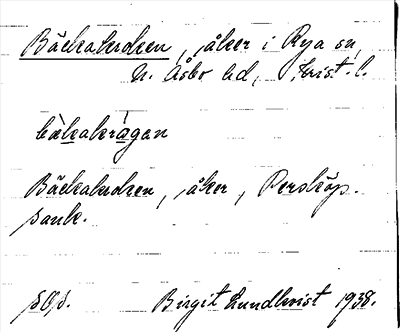 Bäckakroken, åker i Rya sn,
N. Åsbo hd, Krist. l.
bäkakrågan
Bäckakroken, åker, Perstorp.
sank.
Birgit Lundkvist 1938.